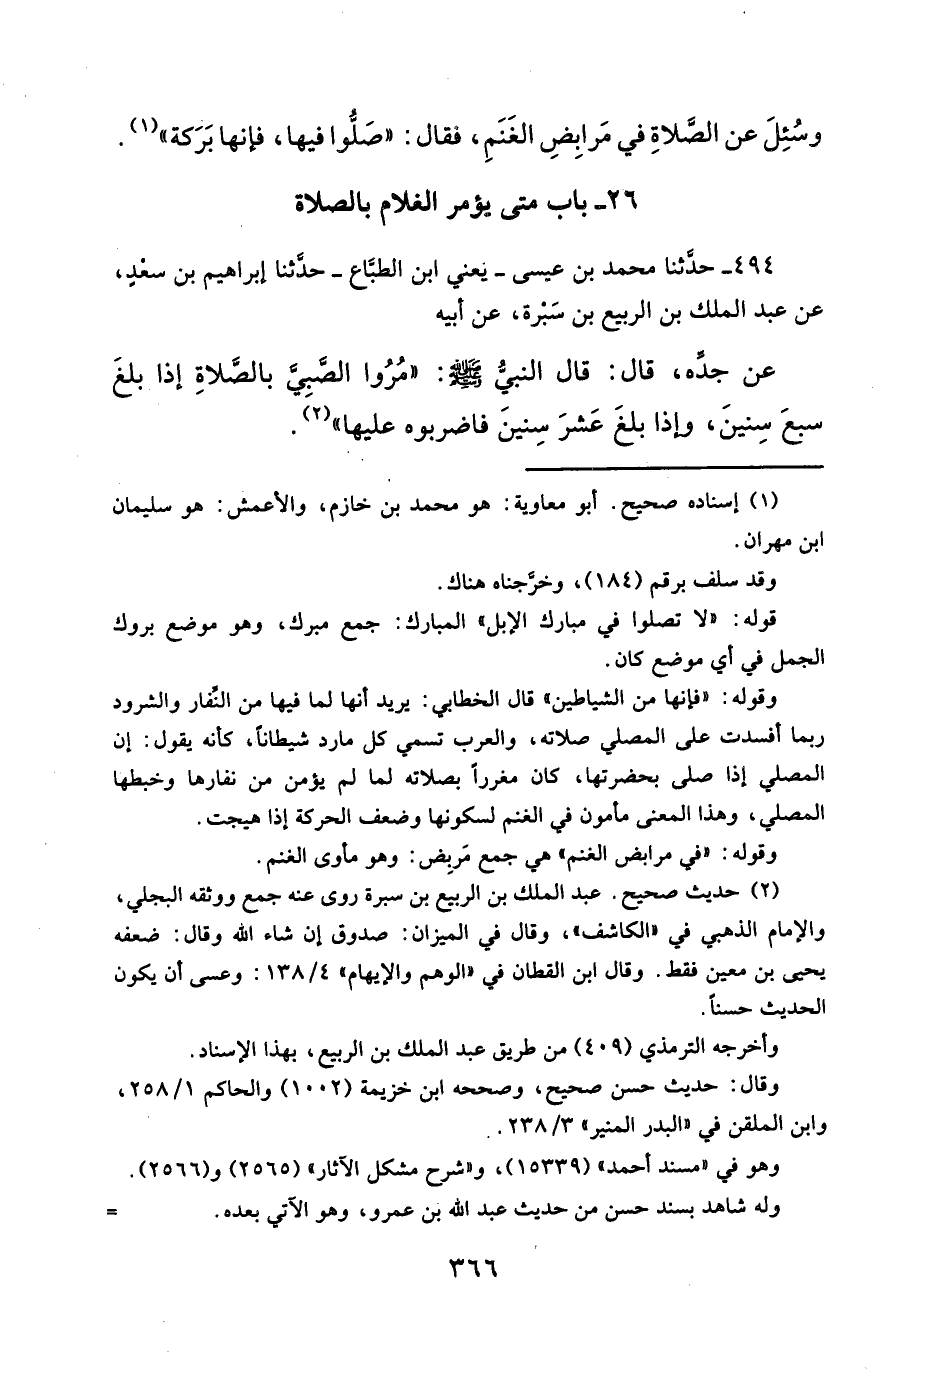 وسُئِلَ عن الصَّلاةِ في مَرابِضِ الغَنَمِ، فقال: «صَلُّوا فيها، فإنها بَرَكة»(١).
٢٦ـ باب متى يؤمر الغلام بالصلاة
٤٩٤ـ حدَّثنا محمد بن عيسى ـ يَعني ابن الطبَّاع ـ حدَّثنا إبراهيم بن سعْدٍ،
عن عبد الملك بن الربيع بن سَبْرة، عن أبيه
عن جدِّه، قال: قال النبيُّ ﷺ: «مُرُوا الصَّبِيَّ بالصَّلاةِ إذا بلغَ
سبعَ سِنينَ، وإذا بلغَ عَشرَ سِنينَ فاضربوه عليها»(٢).
(١) إسناده صحيح. أبو معاوية: هو محمد بن خازم، والأعمش: هو سليمان
ابن مهران.
وقد سلف برقم (١٨٤)، وخرَّجناه هناك.
قوله: «لا تصلوا في مبارك الإبل» المبارك: جمع مبرك، وهو موضع بروك
الجمل في أي موضع كان.
وقوله: «فإنها من الشياطين» قال الخطابي: يريد أنها لما فيها من النِّفار والشرود
ربما أفسدت على المصلي صلاته، والعرب تسمي كل مارد شيطاناً، كأنه يقول: إن
المصلي إذا صلى بحضرتها، كان مغرراً بصلاته لما لم يؤمن من نفارها وخبطها
المصلي، وهذا المعنى مأمون في الغنم لسكونها وضعف الحركة إذا هيجت.
وقوله: «في مرابض الغنم» هي جمع مَربِض: وهو مأوى الغنم.
(٢) حديث صحيح. عبد الملك بن الربيع بن سبرة روى عنه جمع ووثقه البجلي،
والإمام الذهبي في «الكاشف»، وقال في الميزان: صدوق إن شاء الله وقال: ضعفه
يحيى بن معين فقط. وقال ابن القطان في «الوهم والإيهام» ١٣٨/٤: وعسى أن يكون
الحديث حسناً.
وأخرجه الترمذي (٤٠٩) من طريق عبد الملك بن الربيع، بهذا الإسناد.
وقال: حديث حسن صحيح، وصححه ابن خزيمة (١٠٠٢) والحاكم ٢٥٨/١،
وابن الملقن في «البدر المنير» ٢٣٨/٣.
وهو في «مسند أحمد» (١٥٣٣٩)، و«شرح مشكل الآثار» (٢٥٦٥) و(٢٥٦٦).
وله شاهد بسند حسن من حديث عبد الله بن عمرو، وهو الآتي بعده. =
٣٦٦